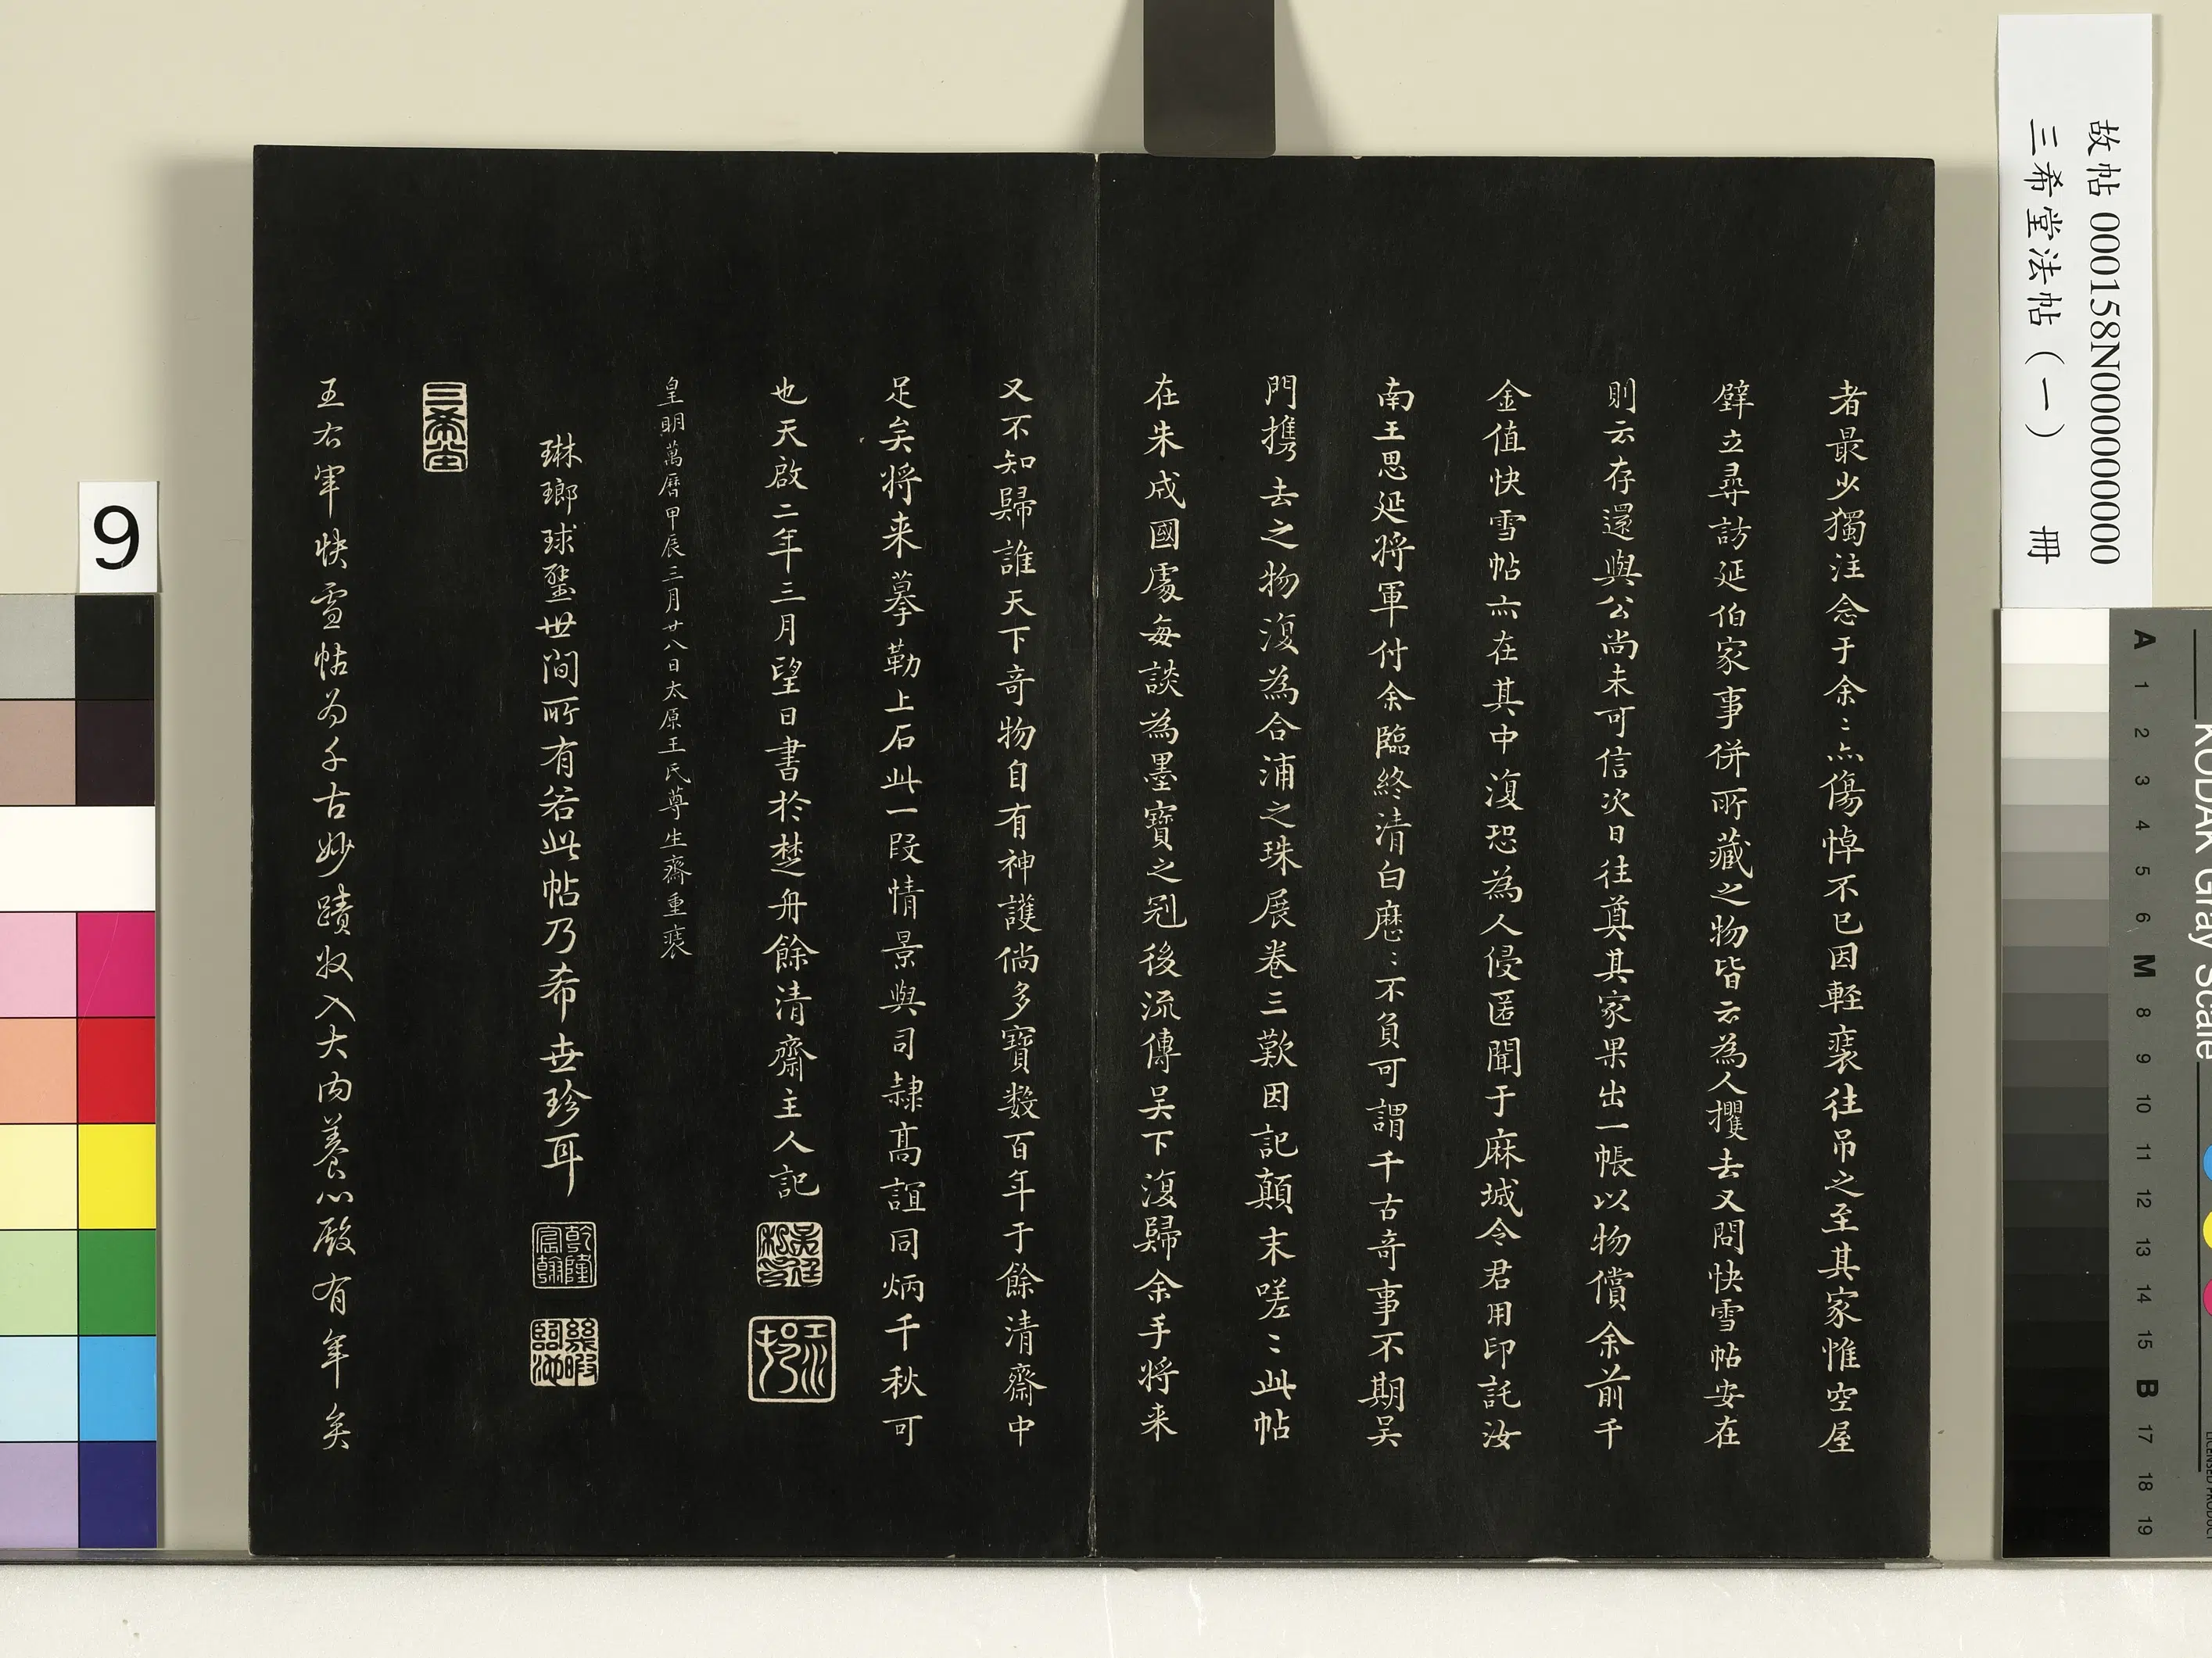 故帖 000158N000000000
三希堂法帖（一） 冊
者最少獨注念于余〻亦傷悼不已因輕裝往吊之至其家惟空屋
壁立尋訪延伯家事併所藏之物皆云為人攫去又問快雪帖安在
則云存還與公尚未可信次日往奠其家果出一帳以物償余前千
金值快雪帖亦在其中復恐為人侵匿聞于麻城令君用印託汝
南王思延將軍付余臨終清白歷〻不負可謂千古奇事不期吳
門攜去之物復為合浦之珠展卷三歎因記顛末嗟〻此帖
在朱成國處每談為墨寶之冠後流傳吳下復歸余手將来
又不知歸誰天下奇物自有神護倘多寶数百年于餘清齋中
足矣將来摹勒上石此一段情景與司隸高誼同炳千秋可
也天啟二年三月望日書於楚舟餘清齋主人記
吳廷私印
江村
皇明萬曆甲辰三月廿八日太原王氏尊生齋重裝
琳瑯球璧世間所有若此帖乃希世珍耳
乾隆宸翰
幾暇臨池
三希堂
王右軍快雪帖為千古妙蹟收入大內養心殿有年矣
9
KODAK Gray Scale
A 1 2 3 4 5 6 M 8 9 10 11 12 13 14 15 B 17 18 19